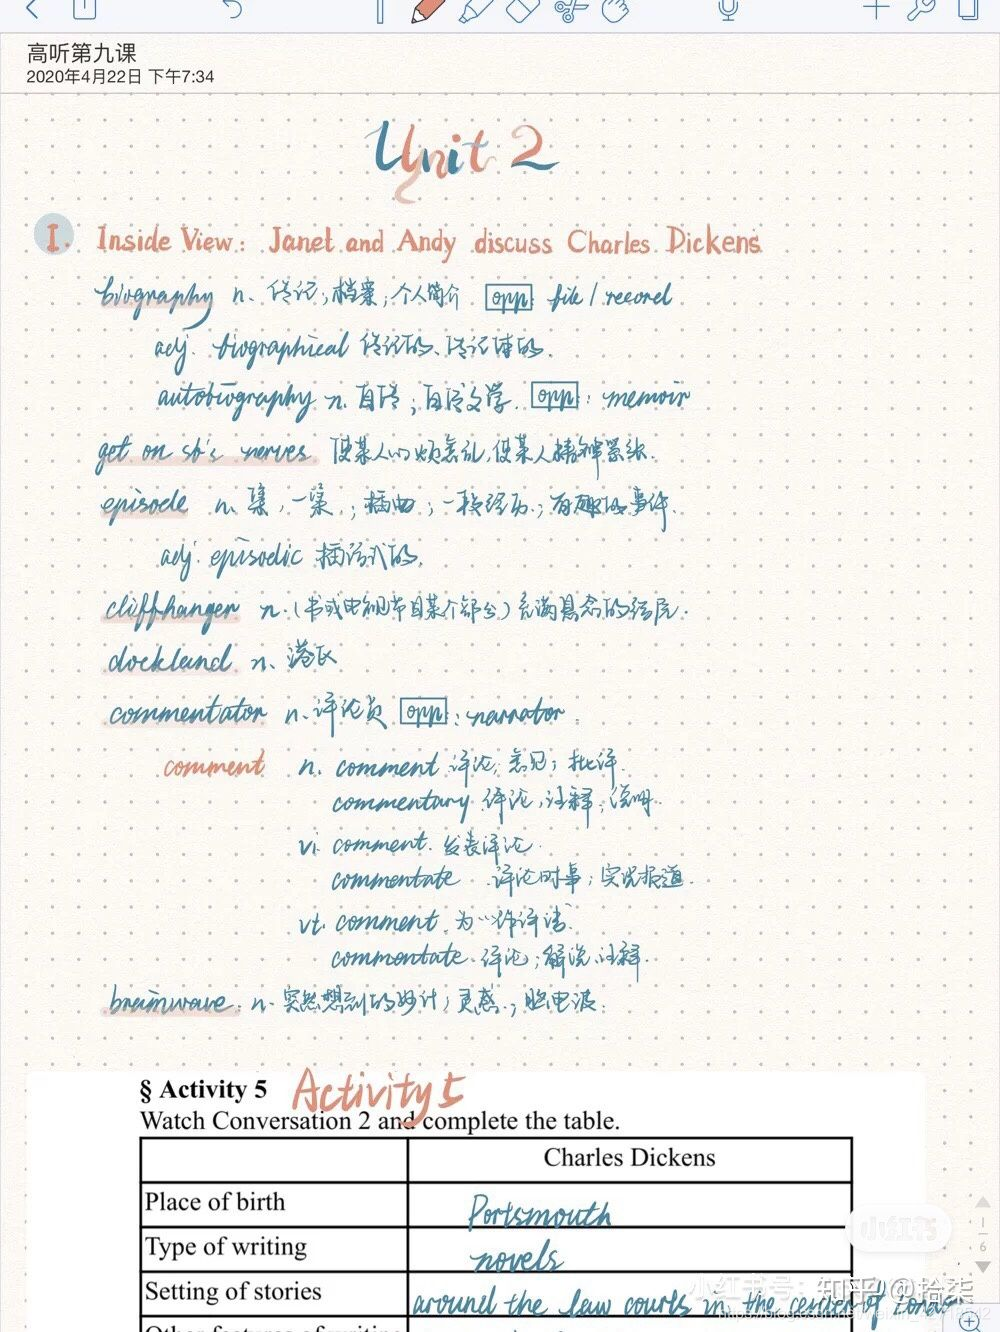 高听第九课
2020年4月22日 下午7:34
Unit 2
I. Inside View: Janet and Andy discuss Charles Dickens
biography n. 传记;档案;个人简介 opp: file / record
adj. biographical 传记的、传记体的.
autobiography n. 自传;自传文学. opp: memoir
get on sb's nerves 使某人心烦意乱,使某人精神紧张.
episode n. 集,一集,;插曲;一段经历;有趣的事件.
adj. episodic 插话式的.
cliffhanger n.(书或电视节目某个部分)充满悬念的结尾.
dockland n. 港区
commentator n. 评论员 opp: narrator.
comment n. comment 评论;意见;批评.
commentary 评论,注释,说明.
vi. comment. 发表评论.
commentate 评论时事;实况报道.
vt. comment 为…作评语.
commentate. 评论;解说.注释.
brainwave. n. 突然想到的妙计;灵感.;脑电波.
§ Activity 5 Activity 5
Watch Conversation 2 and complete the table.
Charles Dickens
Place of birth Portsmouth
Type of writing novels
Setting of stories around the law courts in the center of London
Other features of writing
小红书
1
6
小红书号:
知乎 @拾柒